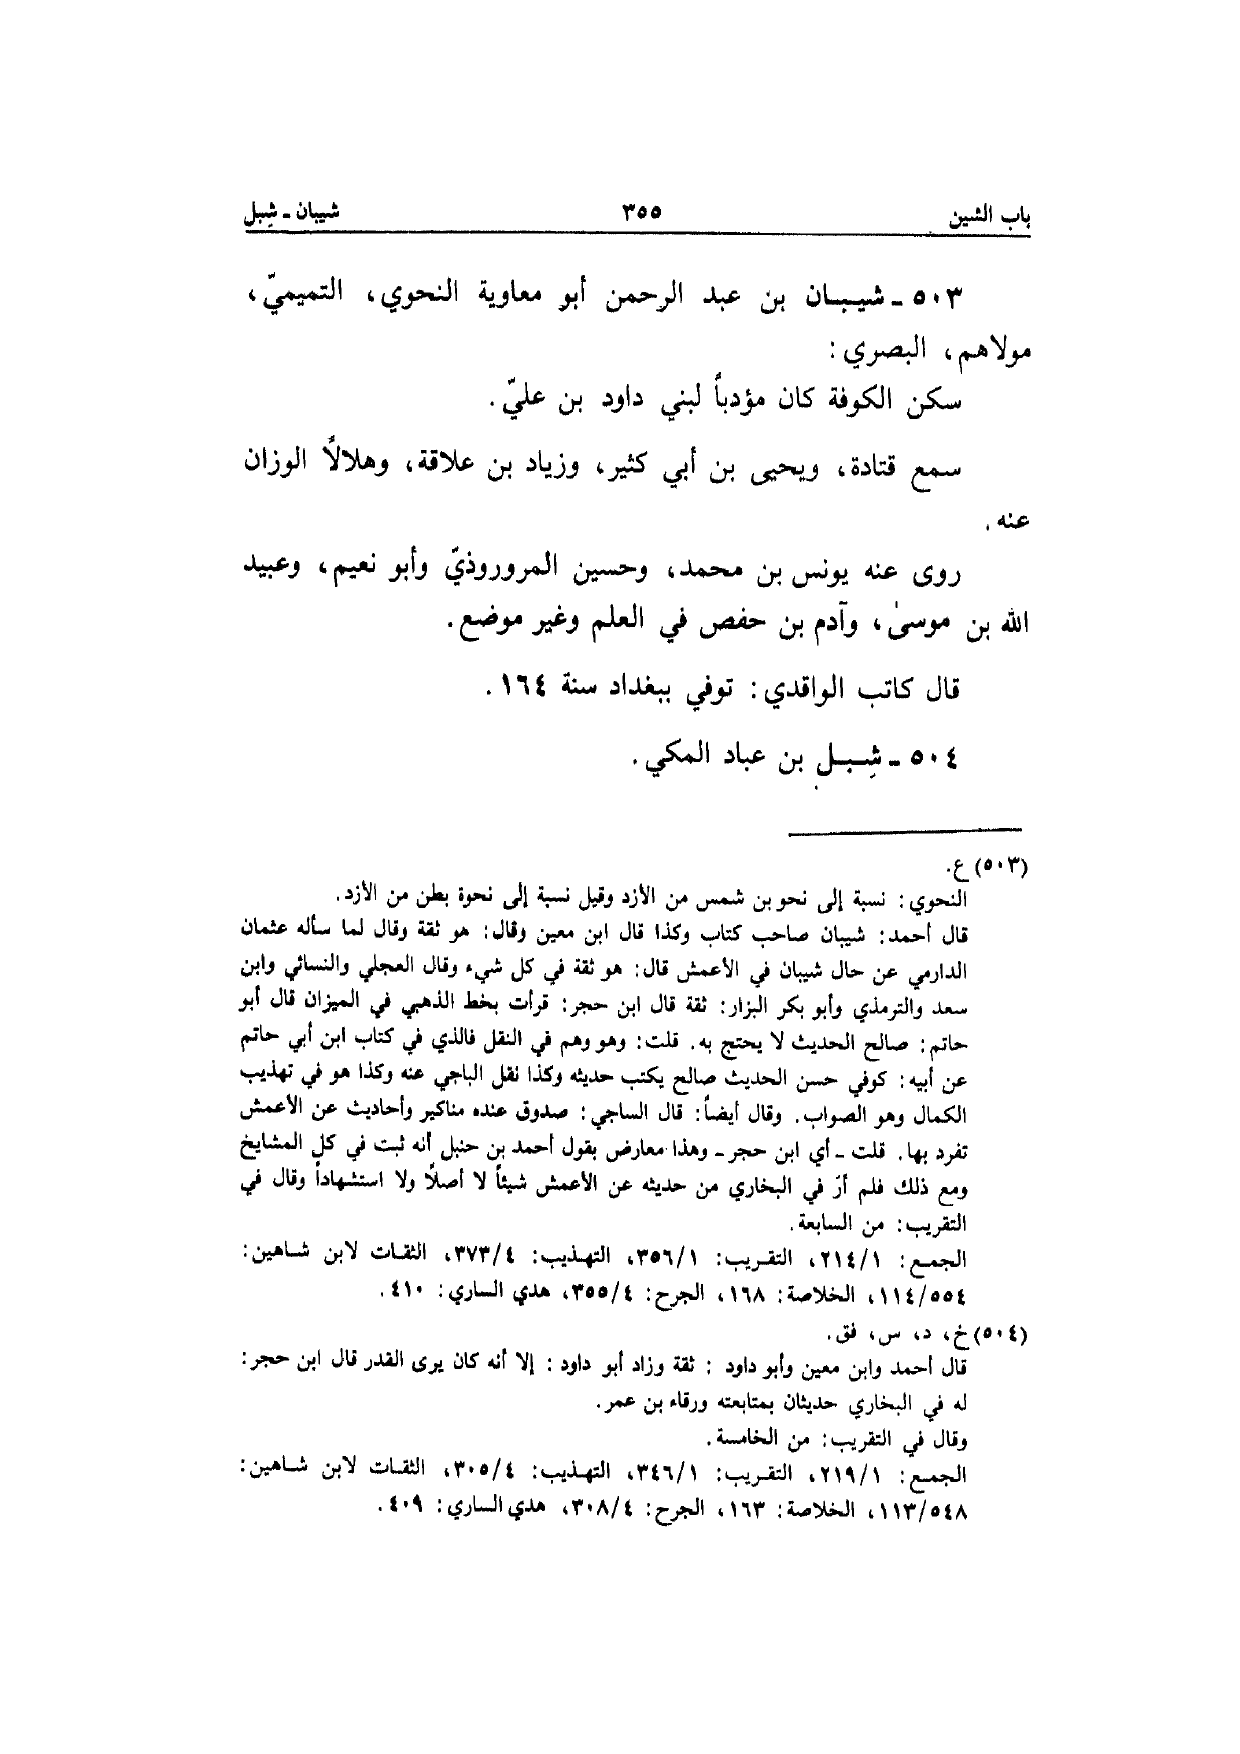 باب الشين ٣٥٥ شيبان ـ شِبل
٥٠٣ ـ شيبان بن عبد الرحمن أبو معاوية النحوي، التميميّ،
مولاهم، البصري:
سكن الكوفة كان مؤدباً لبني داود بن عليّ.
سمع قتادة، ويحيى بن أبي كثير، وزياد بن علاقة، وهلالًا الوزان
عنه.
روى عنه يونس بن محمد، وحسين المروروذيّ وأبو نعيم، وعبيد
الله بن موسىٰ، وآدم بن حفص في العلم وغير موضع.
قال كاتب الواقدي: توفي ببغداد سنة ١٦٤.
٥٠٤ ـ شِبل بن عباد المكي.
(٥٠٣) ع.
النحوي: نسبة إلى نحو بن شمس من الأزد وقيل نسبة إلى نحوة بطن من الأزد.
قال أحمد: شيبان صاحب كتاب وكذا قال ابن معين وقال: هو ثقة وقال لما سأله عثمان
الدارمي عن حال شيبان في الأعمش قال: هو ثقة في كل شيء وقال العجلي والنسائي وابن
سعد والترمذي وأبو بكر البزار: ثقة قال ابن حجر: قرأت بخط الذهبي في الميزان قال أبو
حاتم: صالح الحديث لا يحتج به. قلت: وهو وهم في النقل فالذي في كتاب ابن أبي حاتم
عن أبيه: كوفي حسن الحديث صالح يكتب حديثه وكذا نقل الباجي عنه وكذا هو في تهذيب
الكمال وهو الصواب. وقال أيضاً: قال الساجي: صدوق عنده مناكير وأحاديث عن الأعمش
تفرد بها. قلت ـ أي ابن حجر ـ وهذا معارض بقول أحمد بن حنبل أنه ثبت في كل المشايخ
ومع ذلك فلم أرَ في البخاري من حديثه عن الأعمش شيئاً لا أصلًا ولا استشهاداً وقال في
التقريب: من السابعة.
الجمع: ٢١٤/١، التقريب: ٣٥٦/١، التهذيب: ٣٧٣/٤، الثقات لابن شاهين:
١١٤/٥٥٤، الخلاصة: ١٦٨، الجرح: ٣٥٥/٤، هدي الساري: ٤١٠.
(٥٠٤) خ، د، س، فق.
قال أحمد وابن معين وأبو داود : ثقة وزاد أبو داود : إلا أنه كان يرى القدر قال ابن حجر:
له في البخاري حديثان بمتابعته ورقاء بن عمر.
وقال في التقريب: من الخامسة.
الجمع: ٢١٩/١، التقريب: ٣٤٦/١، التهذيب: ٣٠٥/٤، الثقات لابن شاهين:
١١٣/٥٤٨، الخلاصة: ١٦٣، الجرح: ٣٠٨/٤، هدي الساري: ٤٠٩.